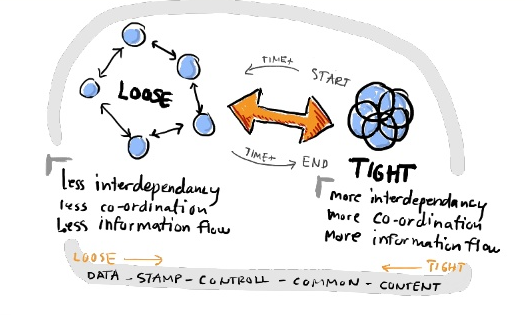 TIME+
START
LOOSE
TIME+
END
TIGHT
less interdependancy
less co-ordination
less information flow
more interdependancy
more co-ordination
more information flow
LOOSE
TIGHT
DATA - STAMP - CONTROLL - COMMON - CONTENT